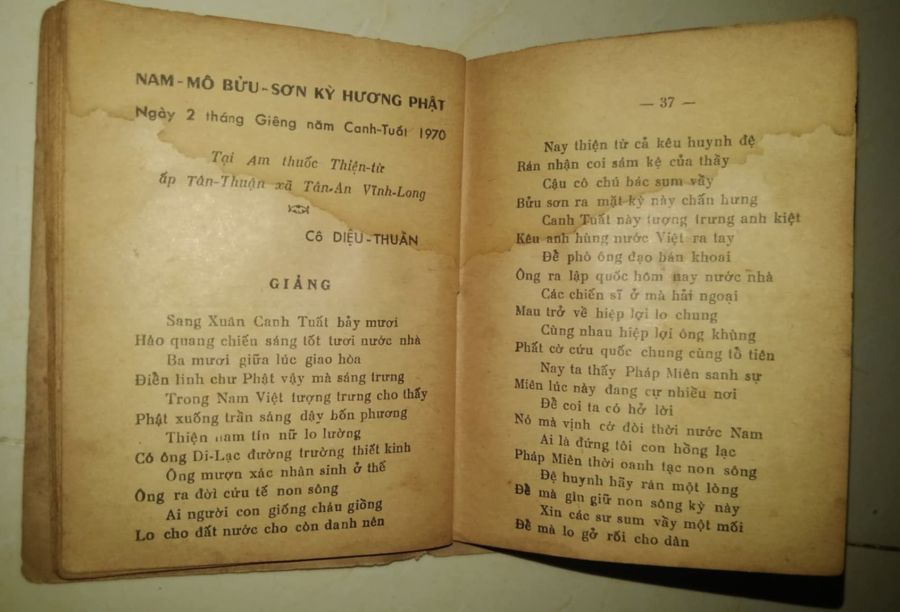 NAM-MÔ BỬU-SƠN KỲ HƯƠNG PHẬT
Ngày 2 tháng Giêng năm Canh-Tuất 1970
Tại Am thuốc Thiện-từ
ấp Tân-Thuận xã Tân-An Vĩnh-Long
Cô DIỆU-THUẦN
GIẢNG
Sang Xuân Canh Tuất bảy mươi
Hào quang chiếu sáng tốt tươi nước nhà
Ba mươi giữa lúc giao hòa
Điển linh chư Phật vậy mà sáng trưng
Trong Nam Việt tượng trưng cho thấy
Phật xuống trần sáng dậy bốn phương
Thiện nam tín nữ lo lường
Có ông Di-Lạc đường trường thiết kinh
Ông mượn xác nhân sinh ở thế
Ông ra đời cứu tế non sông
Ai người con giống cháu giồng
Lo cho đất nước cho còn danh nên
— 37 —
Nay thiện từ cả kêu huynh đệ
Rán nhận coi sám kệ của thầy
Cậu cô chú bác sum vầy
Bửu sơn ra mặt kỳ này chấn hưng
Canh Tuất này tượng trưng anh kiệt
Kêu anh hùng nước Việt ra tay
Đề phò ông đạo bán khoai
Ông ra lập quốc hôm nay nước nhà
Các chiến sĩ ở mà hải ngoại
Mau trở về hiệp lợi lo chung
Cùng nhau hiệp lợi ông khùng
Phất cờ cứu quốc chung cùng tổ tiên
Nay ta thấy Pháp Miên sanh sự
Miên lúc này đang cự nhiều nơi
Đề coi ta có hở lời
Nó mà vịnh cớ đòi thời nước Nam
Ai là đứng tôi con hồng lạc
Pháp Miên thời oanh tạc non sông
Đệ huynh hãy rán một lòng
Đề mà gìn giữ non sông kỳ này
Xin các sư sum vầy một mối
Đề mà lo gở rối cho dân